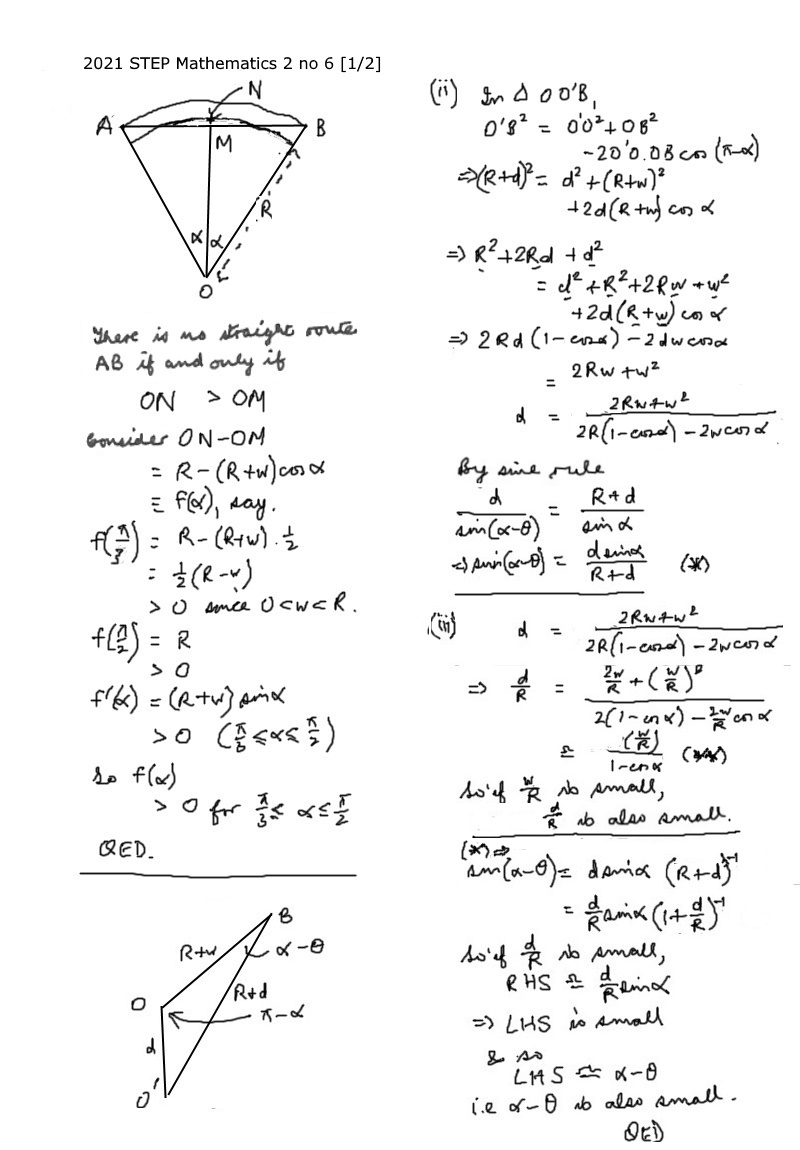 2021 STEP Mathematics 2 no 6 [1/2]
N
A
B
M
R
α α
O
There is no straight route
AB if and only if
ON > OM
Consider ON-OM
= R-(R+w)cosα
≡ f(α), say.
f(π/3) = R-(R+w).½
= ½(R-w)
> 0 since 0<w<R.
f(π/2) = R
> 0
f'(α) = (R+w) sinα
> 0 (π/3 ≤ α ≤ π/2)
So f(α)
> 0 for π/3 ≤ α ≤ π/2
QED.
B
R+w
α-θ
O
R+d
π-α
d
O'
(ii) In Δ OO'B,
O'B² = O'O²+OB²
-2O'O.OB cos (π-α)
⇒(R+d)² = d²+(R+w)²
+2d(R+w) cos α
⇒ R²+2Rd+d²
= d²+R²+2Rw+w²
+2d(R+w) cos α
⇒ 2Rd(1-cosα)-2dwcosα
= 2Rw+w²
d = (2Rw+w²)/(2R(1-cosα)-2wcosα)
By sine rule
d/sin(α-θ) = (R+d)/sin α
⇒ sin(α-θ) = d sinα/(R+d) (*)
(iii) d = (2Rw+w²)/(2R(1-cosα)-2wcosα)
⇒ d/R = (2w/R+(w/R)²)/(2(1-cos α)-2w/R cos α)
≏ (w/R)/(1-cosα) (**)
So if w/R is small,
d/R is also small.
(*) ⇒
sin(α-θ) = d sinα (R+d)⁻¹
= d/R sinα (1+d/R)⁻¹
So if d/R is small,
RHS ≏ d/R sinα
⇒ LHS is small
& so
LHS ≏ α-θ
i.e α-θ is also small.
QED